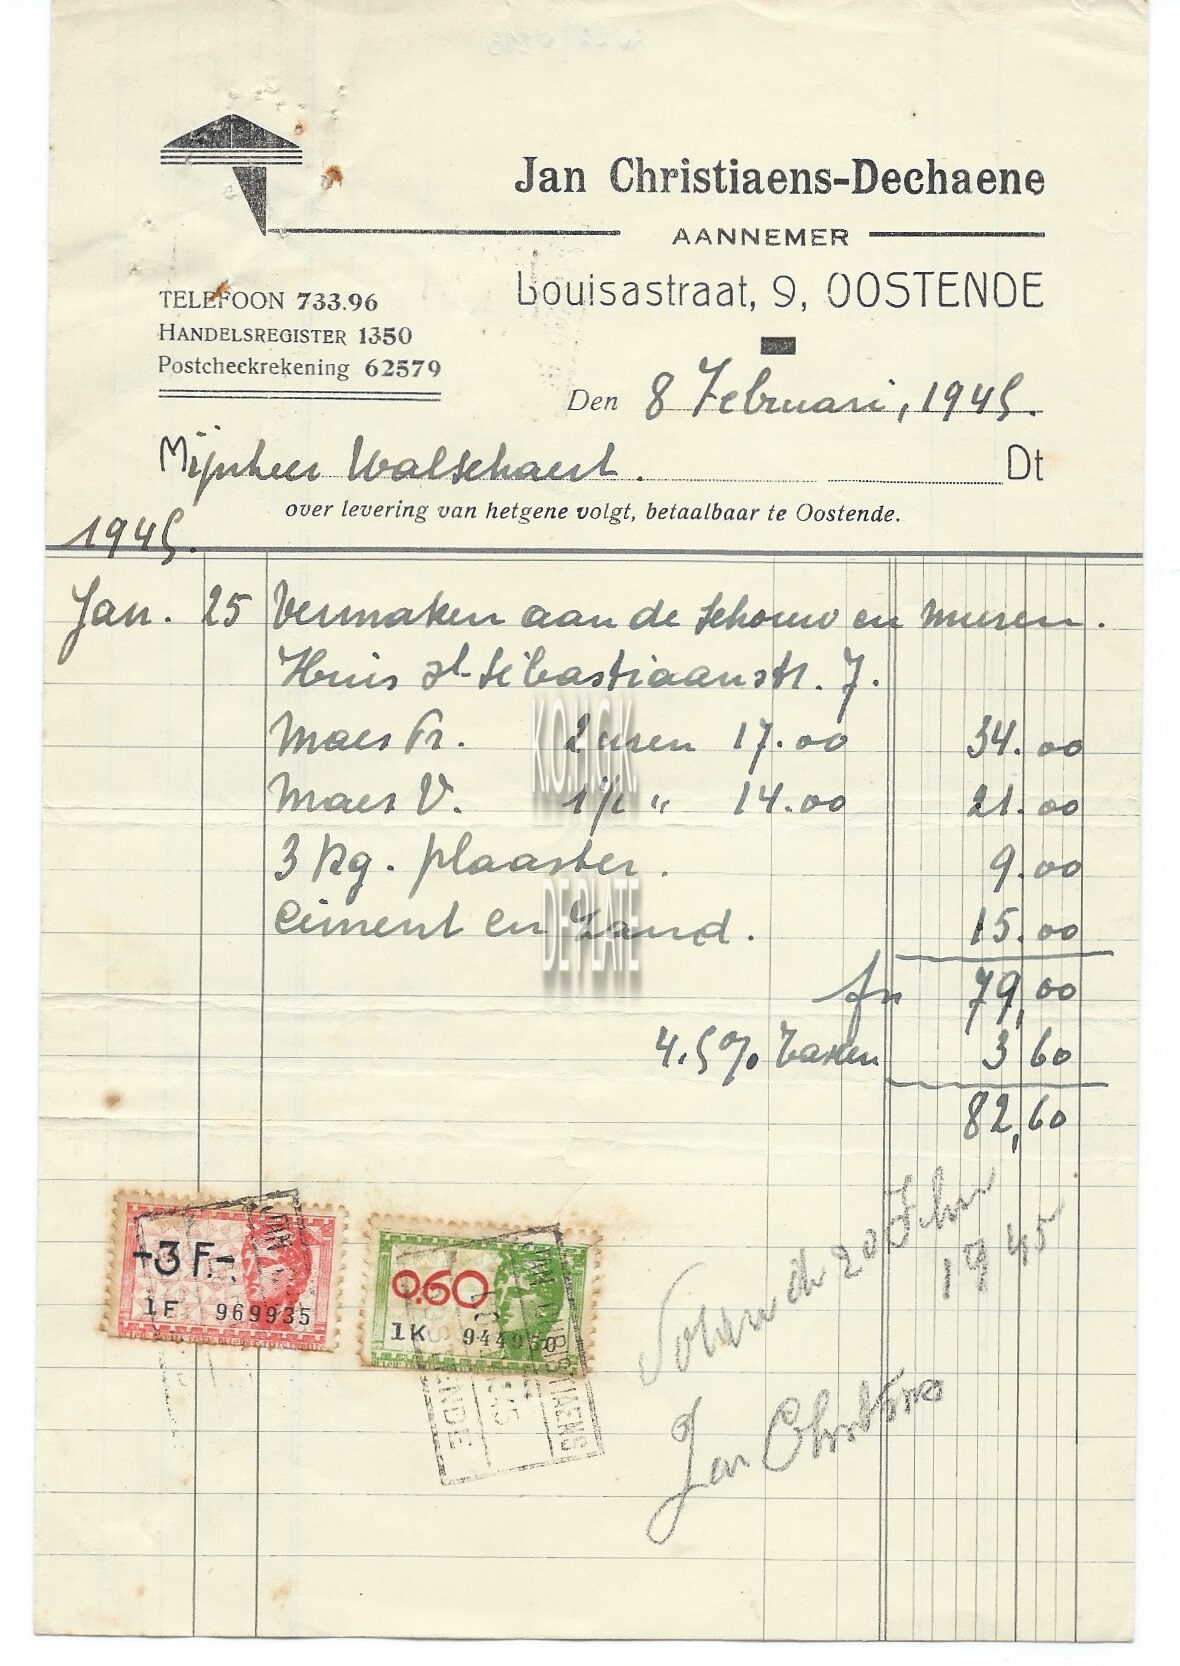 Jan Christiaens-Dechaene
AANNEMER
Louisastraat, 9, OOSTENDE
TELEFOON 733.96
HANDELSREGISTER 1350
Postcheckrekening 62579
Den 8 Februari, 1945.
Mijnheer Walschaert. Dt
over levering van hetgene volgt, betaalbaar te Oostende.
1945.
Jan. 25 Vermaken aan de schouw en muren.
Huis St-Sebastiaanstr. 7.
Maes Fr. 2 uren 17.00 34.00
Maes V. 1½ " 14.00 21.00
3 kg. plaaster. 9.00
Ciment en Zand. 15.00
fr 79,00
4.5% taxen 3 60
82,60
K.O.H.G.K.
DE PLATE
3 F.-
1F 969935
0.60
1K 944950
JAN CHRISTIAENS
OOSTENDE
20
1945
Jan